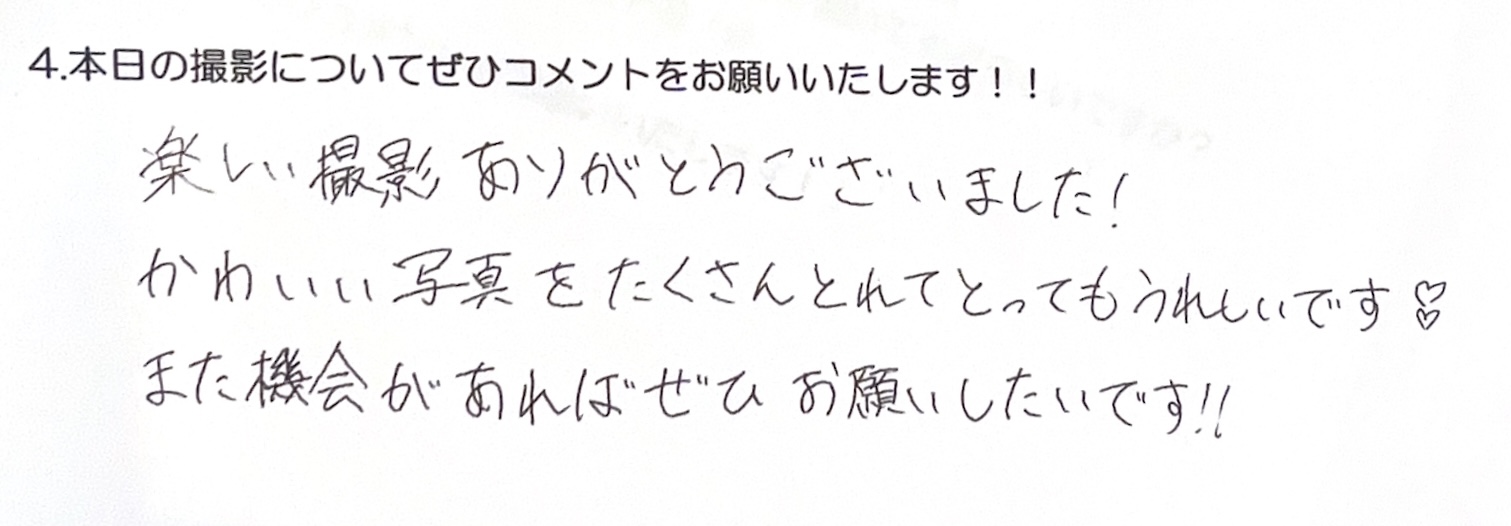 4.本日の撮影についてぜひコメントをお願いいたします！！
楽しい撮影ありがとうございました!
かわいい写真をたくさんとれてとってもうれしいです♡♡
また機会があればぜひお願いしたいです!!